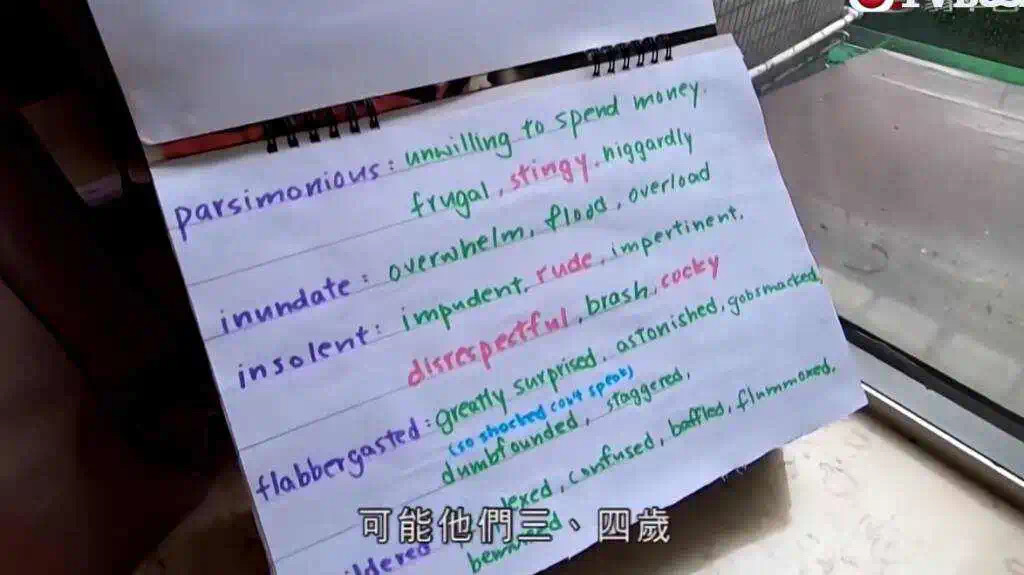 parsimonious: unwilling to spend money.
frugal, stingy, niggardly
inundate: overwhelm, flood, overload
insolent: impudent, rude, impertinent,
disrespectful, brash, cocky
flabbergasted: greatly surprised, astonished, gobsmacked,
(so shocked can't speak)
dumbfounded, staggered,
confused, baffled, flummoxed,
可能他們三、四歲